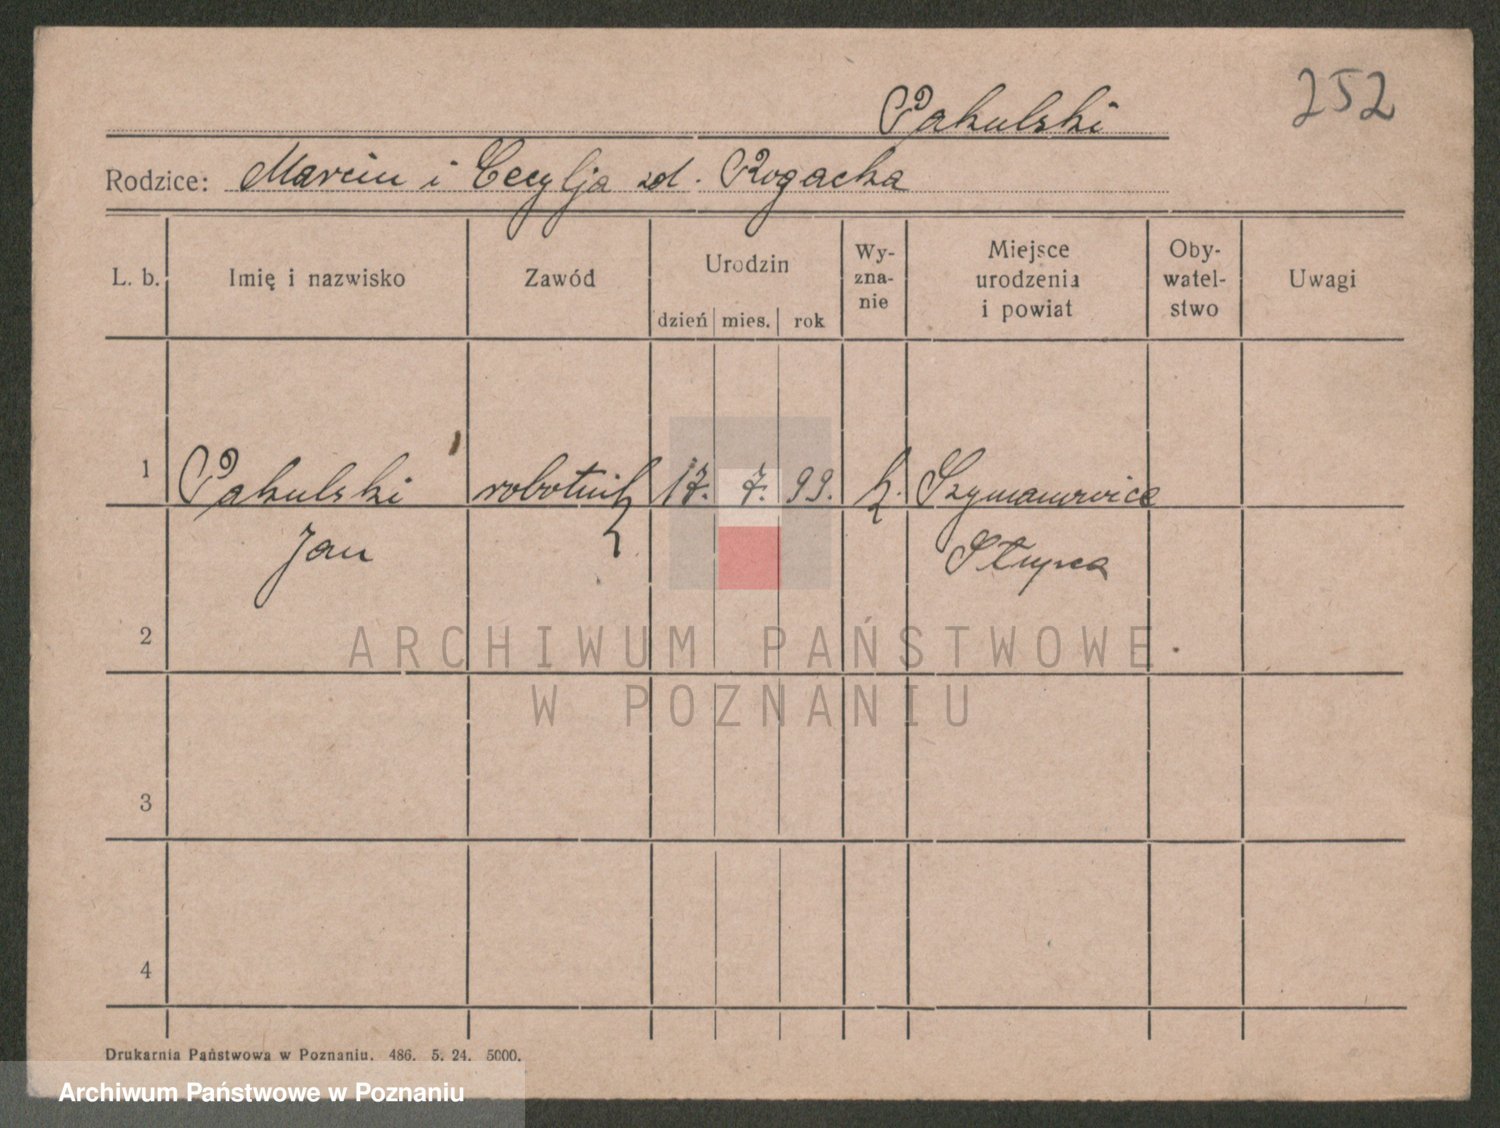 252
Pakulski
Rodzice: Marcin i Cecylja zd. Rogacka
L. b.
Imię i nazwisko
Zawód
Urodzin
dzień mies. rok
Wy-
zna-
nie
Miejsce
urodzenia
i powiat
Oby-
watel-
stwo
Uwagi
1 Pakulski robotnik 17. 7. 99. k. Szymanowice
Jan Słupca
2
3
4
ARCHIWUM PAŃSTWOWE
W POZNANIU
Drukarnia Państwowa w Poznaniu. 486. 5. 24. 5000.
Archiwum Państwowe w Poznaniu